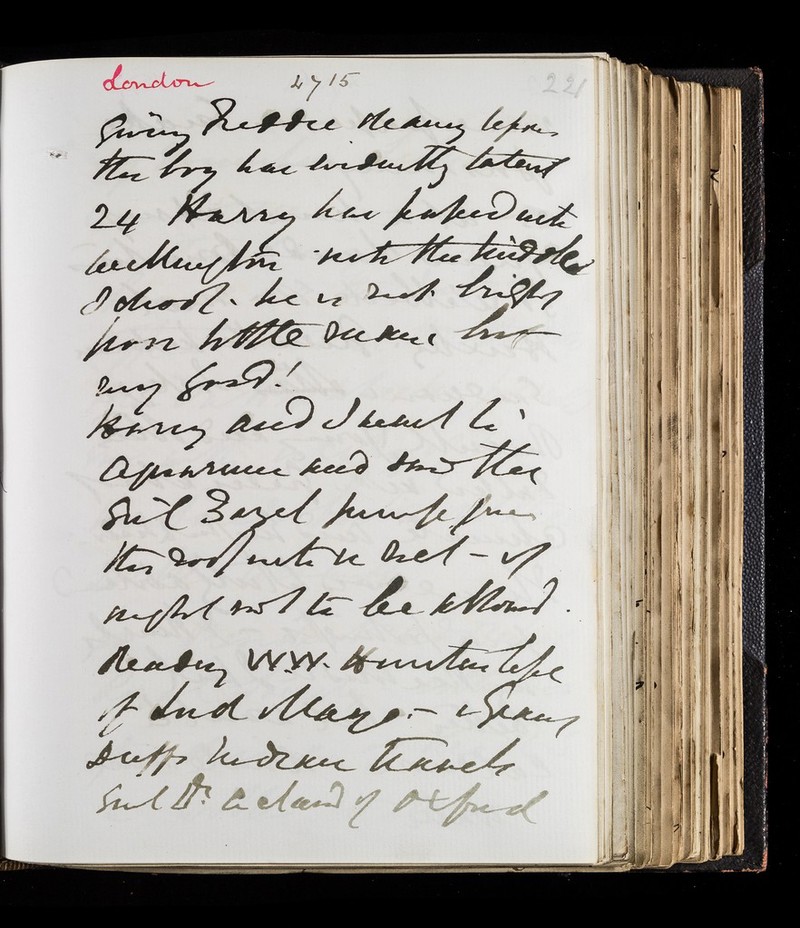 London 4715 221
giving Freddie Deanery lessons
the boy has evidently talent
24 Harry has passed into
Wellington into the middle
School. he is not bright
poor little man but
very good!
Harry and I went to
Aquarium and saw the
girl Zazel jump from
the roof into a net - it
ought not to be allowed.
Reading W.W. Hunters life
of Lord Mayo - & Grant
Duffs Indian travels
Dr. Acland of Oxford